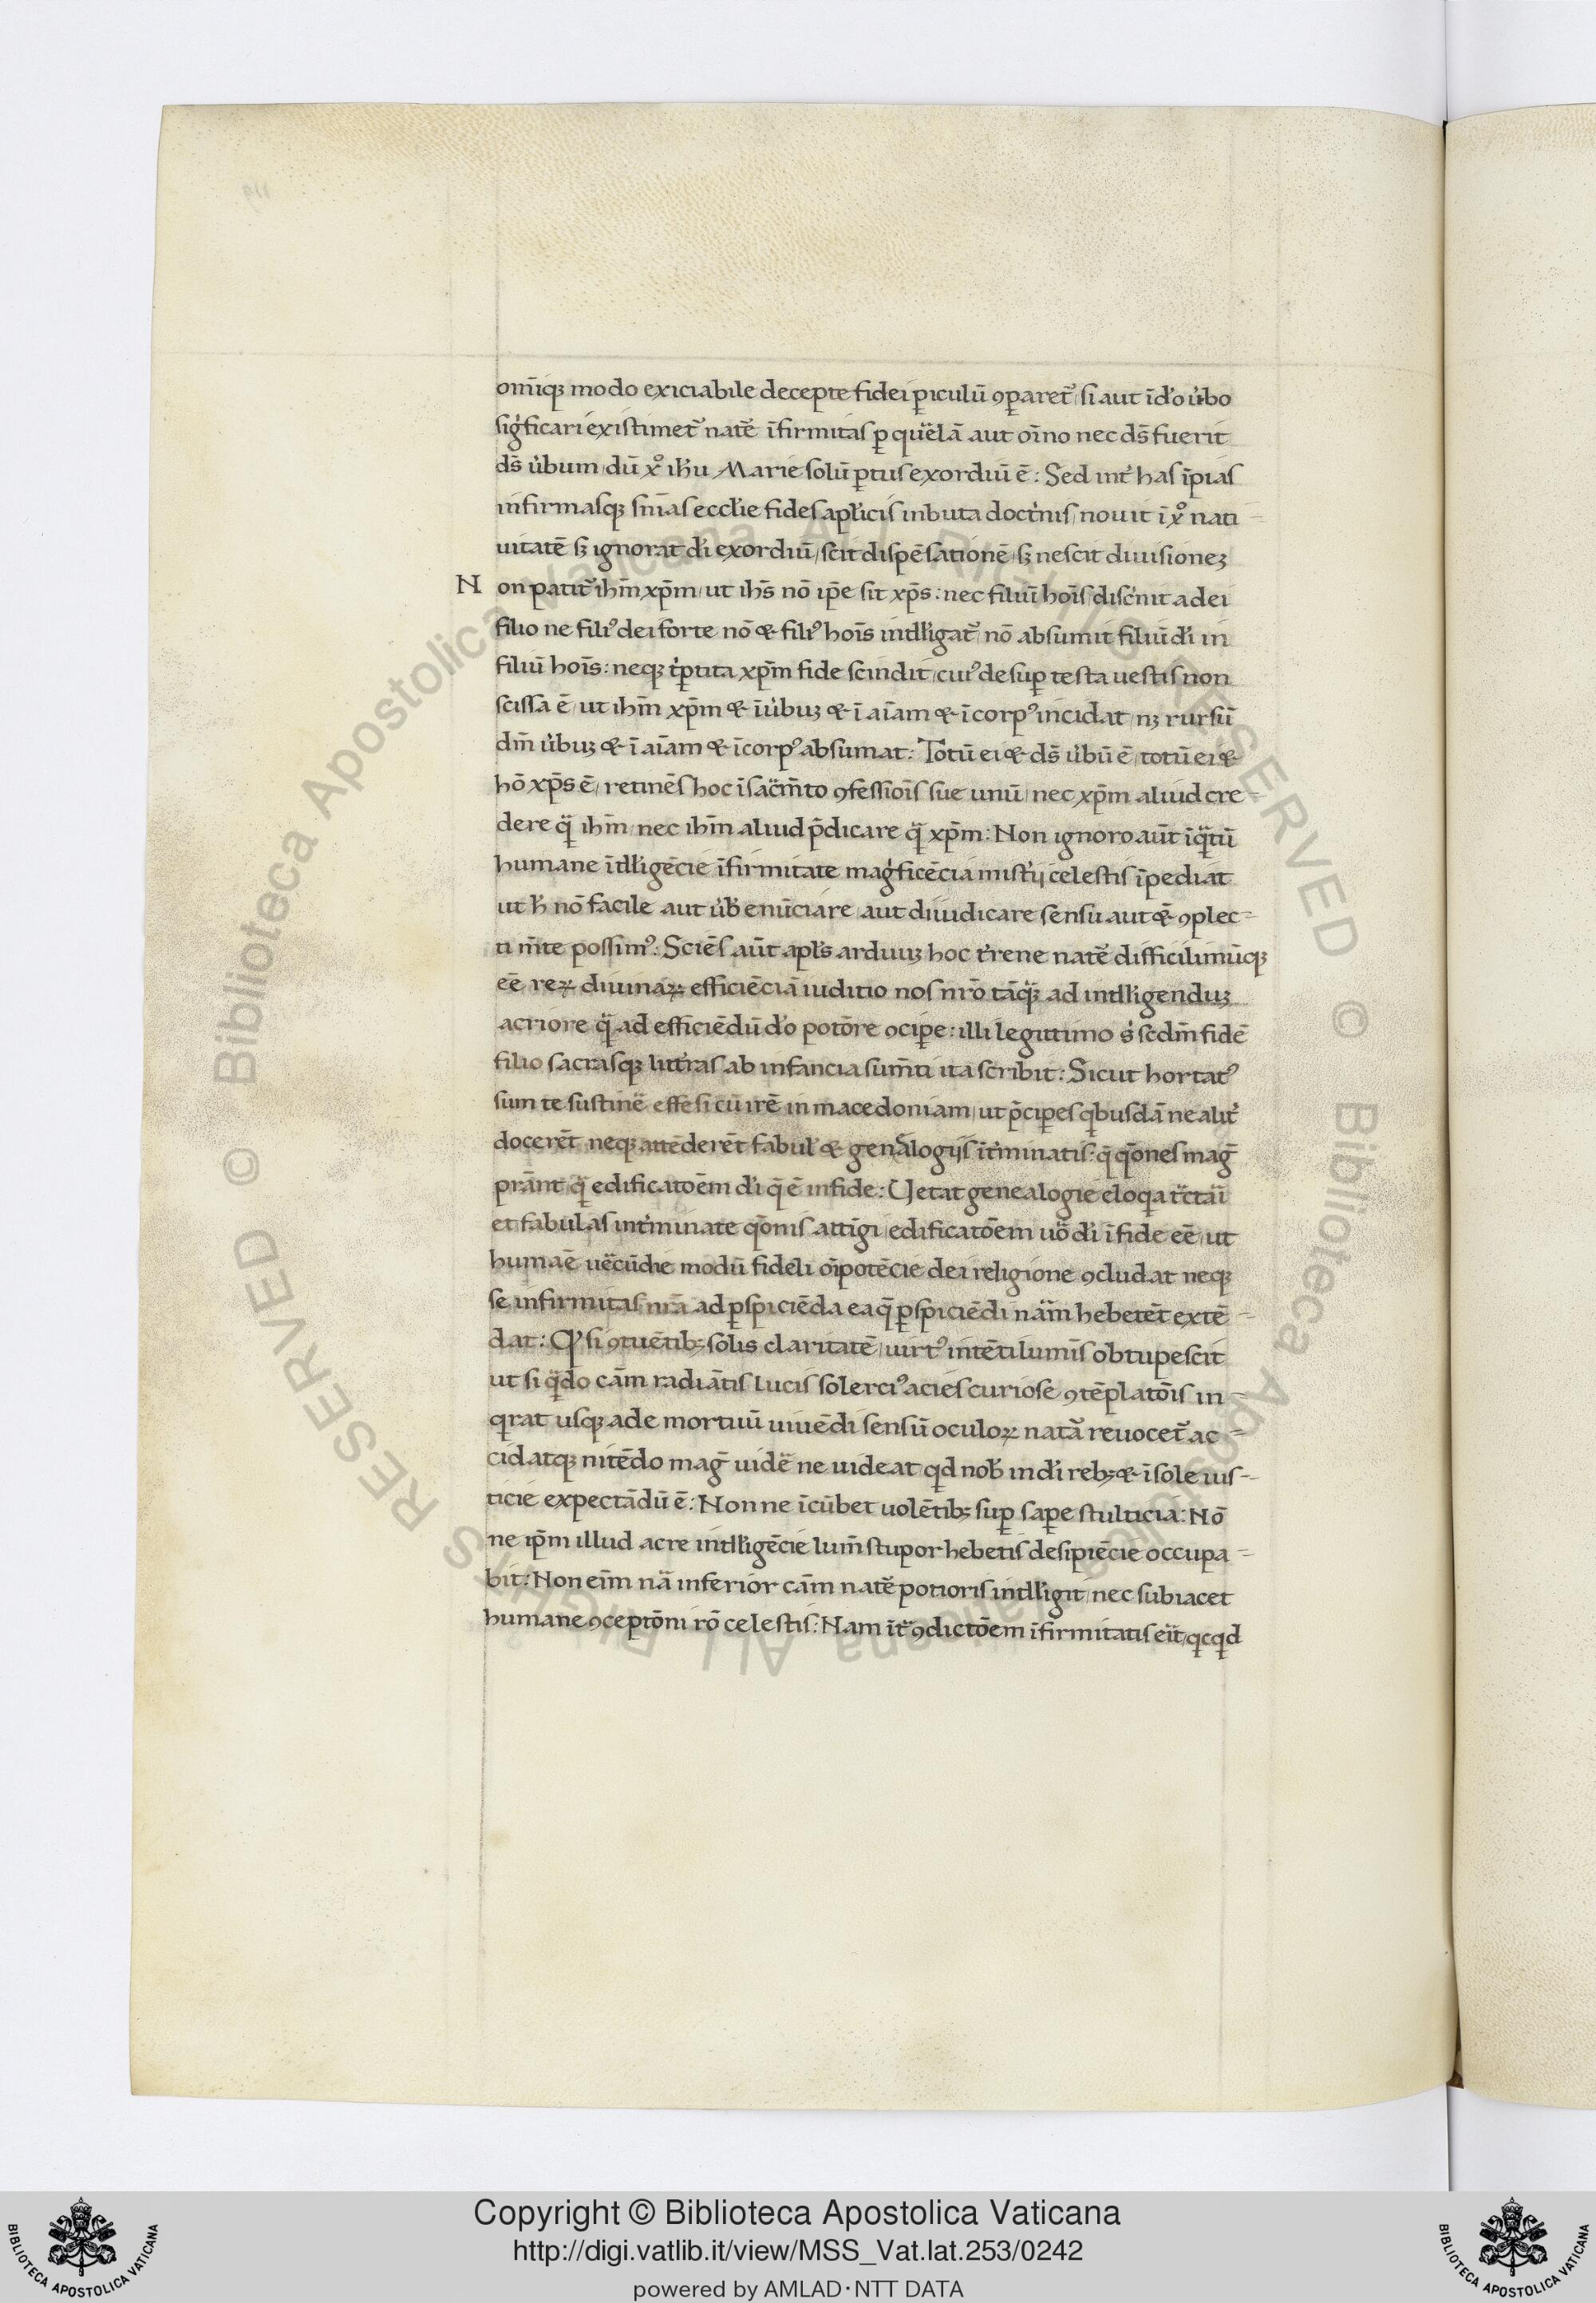 om̄iqꝫ modo exiciabile decepte fidei ꝑiculū ꝯꝑaret᷑ / si aut īdo̓ u̓bo
sig̓ficari existimet᷑ nate᷑ īfirmitas ꝑ que᷑lā aut oīno nec ds̄ fuerit
ds̄ u̓bum / dū xo̓ ih̓u Marie solū ꝑtus exordiū ē : Sed int̓ has īpias
infirmasqꝫ sn̄ias eccl̓ie fides apl̓icis inbuta doct̓nis / nouit ī xo̓ nati
uitatē sꝫ ignorat di̓ exordiū / scit dispēsationē / sꝫ nescit diuisioneꝫ
N on patit᷑ ihm̄ xp̄m / ut ihs̄ nō ip̄e sit xp̄s : nec filiū hoīs disc̓nit a dei
filio ne fili᷒ dei forte nō & fili᷒ hoīs intll̓igat᷑ / nō absumit filiū di̓ in
filiū hoīs : neqꝫ t̓ꝑtita xp̄m fide scindit / cui᷒ desuꝑ testa uestis non
scissa ē / ut ihm̄ xp̄m & ī u̓buꝫ & ī aīam & ī corp᷒ incidat / nꝫ rursū
dm̄ u̓buꝫ & ī aīam & ī corp᷒ absumat : Totū ei & ds̄ u̓bū ē / totū ei &
hō xp̄s ē / retinēs hoc ī sac̄m̄to ꝯfessioīs sue unū / nec xp̄m aliud cre
dere q᷑ ihm̄ / nec ihm̄ aliud p̄dicare q᷑ xp̄m : Non ignoro aūt īq᷑tū
humane ītll̓igēcie īfirmitate mag̓ficēcia mist̓ij celestis īpediat
ut h̓ nō facile aut u̓b̓ enūciare / aut diiudicare sensu aut &̄ ꝯplec
ti m̄te possim᷒ : Sciēs aūt apl̓s arduuꝫ hoc t̓rene nate᷑ difficilimūqꝫ
eē reꝝ diuinaꝝ efficiēciā iuditio nos nr̄o tāq᷑ ad intll̓igenduꝫ
acriore q᷑ ad efficiēdū do̓ potōre ꝯciꝑe : illi legittimo s̓ scdm̄ fidē
filio sacrasqꝫ litt̓ras ab infancia sum̄ti ita scribit : Sicut hortat᷒
sum te sustine᷑ effesi cū irē in macedoniam / ut p̄ciꝑes qbusdā ne alit̓
docerēt neqꝫ attēderēt fabul̓ & genealogijs īt̓minatis : q̄ qōnes mag̓
p̄rānt q᷑ edificatoēm di̓ q̄ ē in fide : Uetat genealogie eloqa t᷑ctai᷑
et fabulas int̓minate qōnis attīgi / edificatōem uo᷑ di̓ ī fide eē / ut
humaē ue᷑cūdie modū fideli oīpotēcie dei religione ꝯcludat neqꝫ
se infirmitas nr̄a ad ꝑspiciēda ea q̄ ꝑspiciēdi na᷑m hebetēt extē
dat : Qꝰ si ꝯtuētibꝫ solis claritatē / uirt᷒ intēti lumīs obtupescit
ut si q᷑do cām radiātis lucis solerci᷒ acies curiose ꝯtēplatōīs in
qrat usqꝫ ad emortuū uiuēdi sensū oculoꝝ nata᷑ reuocet᷑ ac
cidatqꝫ nitēdo mag̓ uide᷑ ne uideat qd nob̓ in di̓ rebꝫ & ī sole ius
ticie expectādū ē : Non ne īcūbet uolētibꝫ suꝑ saꝑe stulticia : Nō
ne ip̄m illud acre intll̓igēcie lum̄ stupor hebetis desipiēcie occupa
bit : Non eīm na᷑ inferior cām nate᷑ potioris intll̓igit / nec subiacet
humane ꝯceptōni rō celestis : Nam īt᷑ ꝯdictōem īfirmitatis eīt / qcqd
Copyright © Biblioteca Apostolica Vaticana
http://digi.vatlib.it/view/MSS_Vat.lat.253/0242
powered by AMLAD·NTT DATA